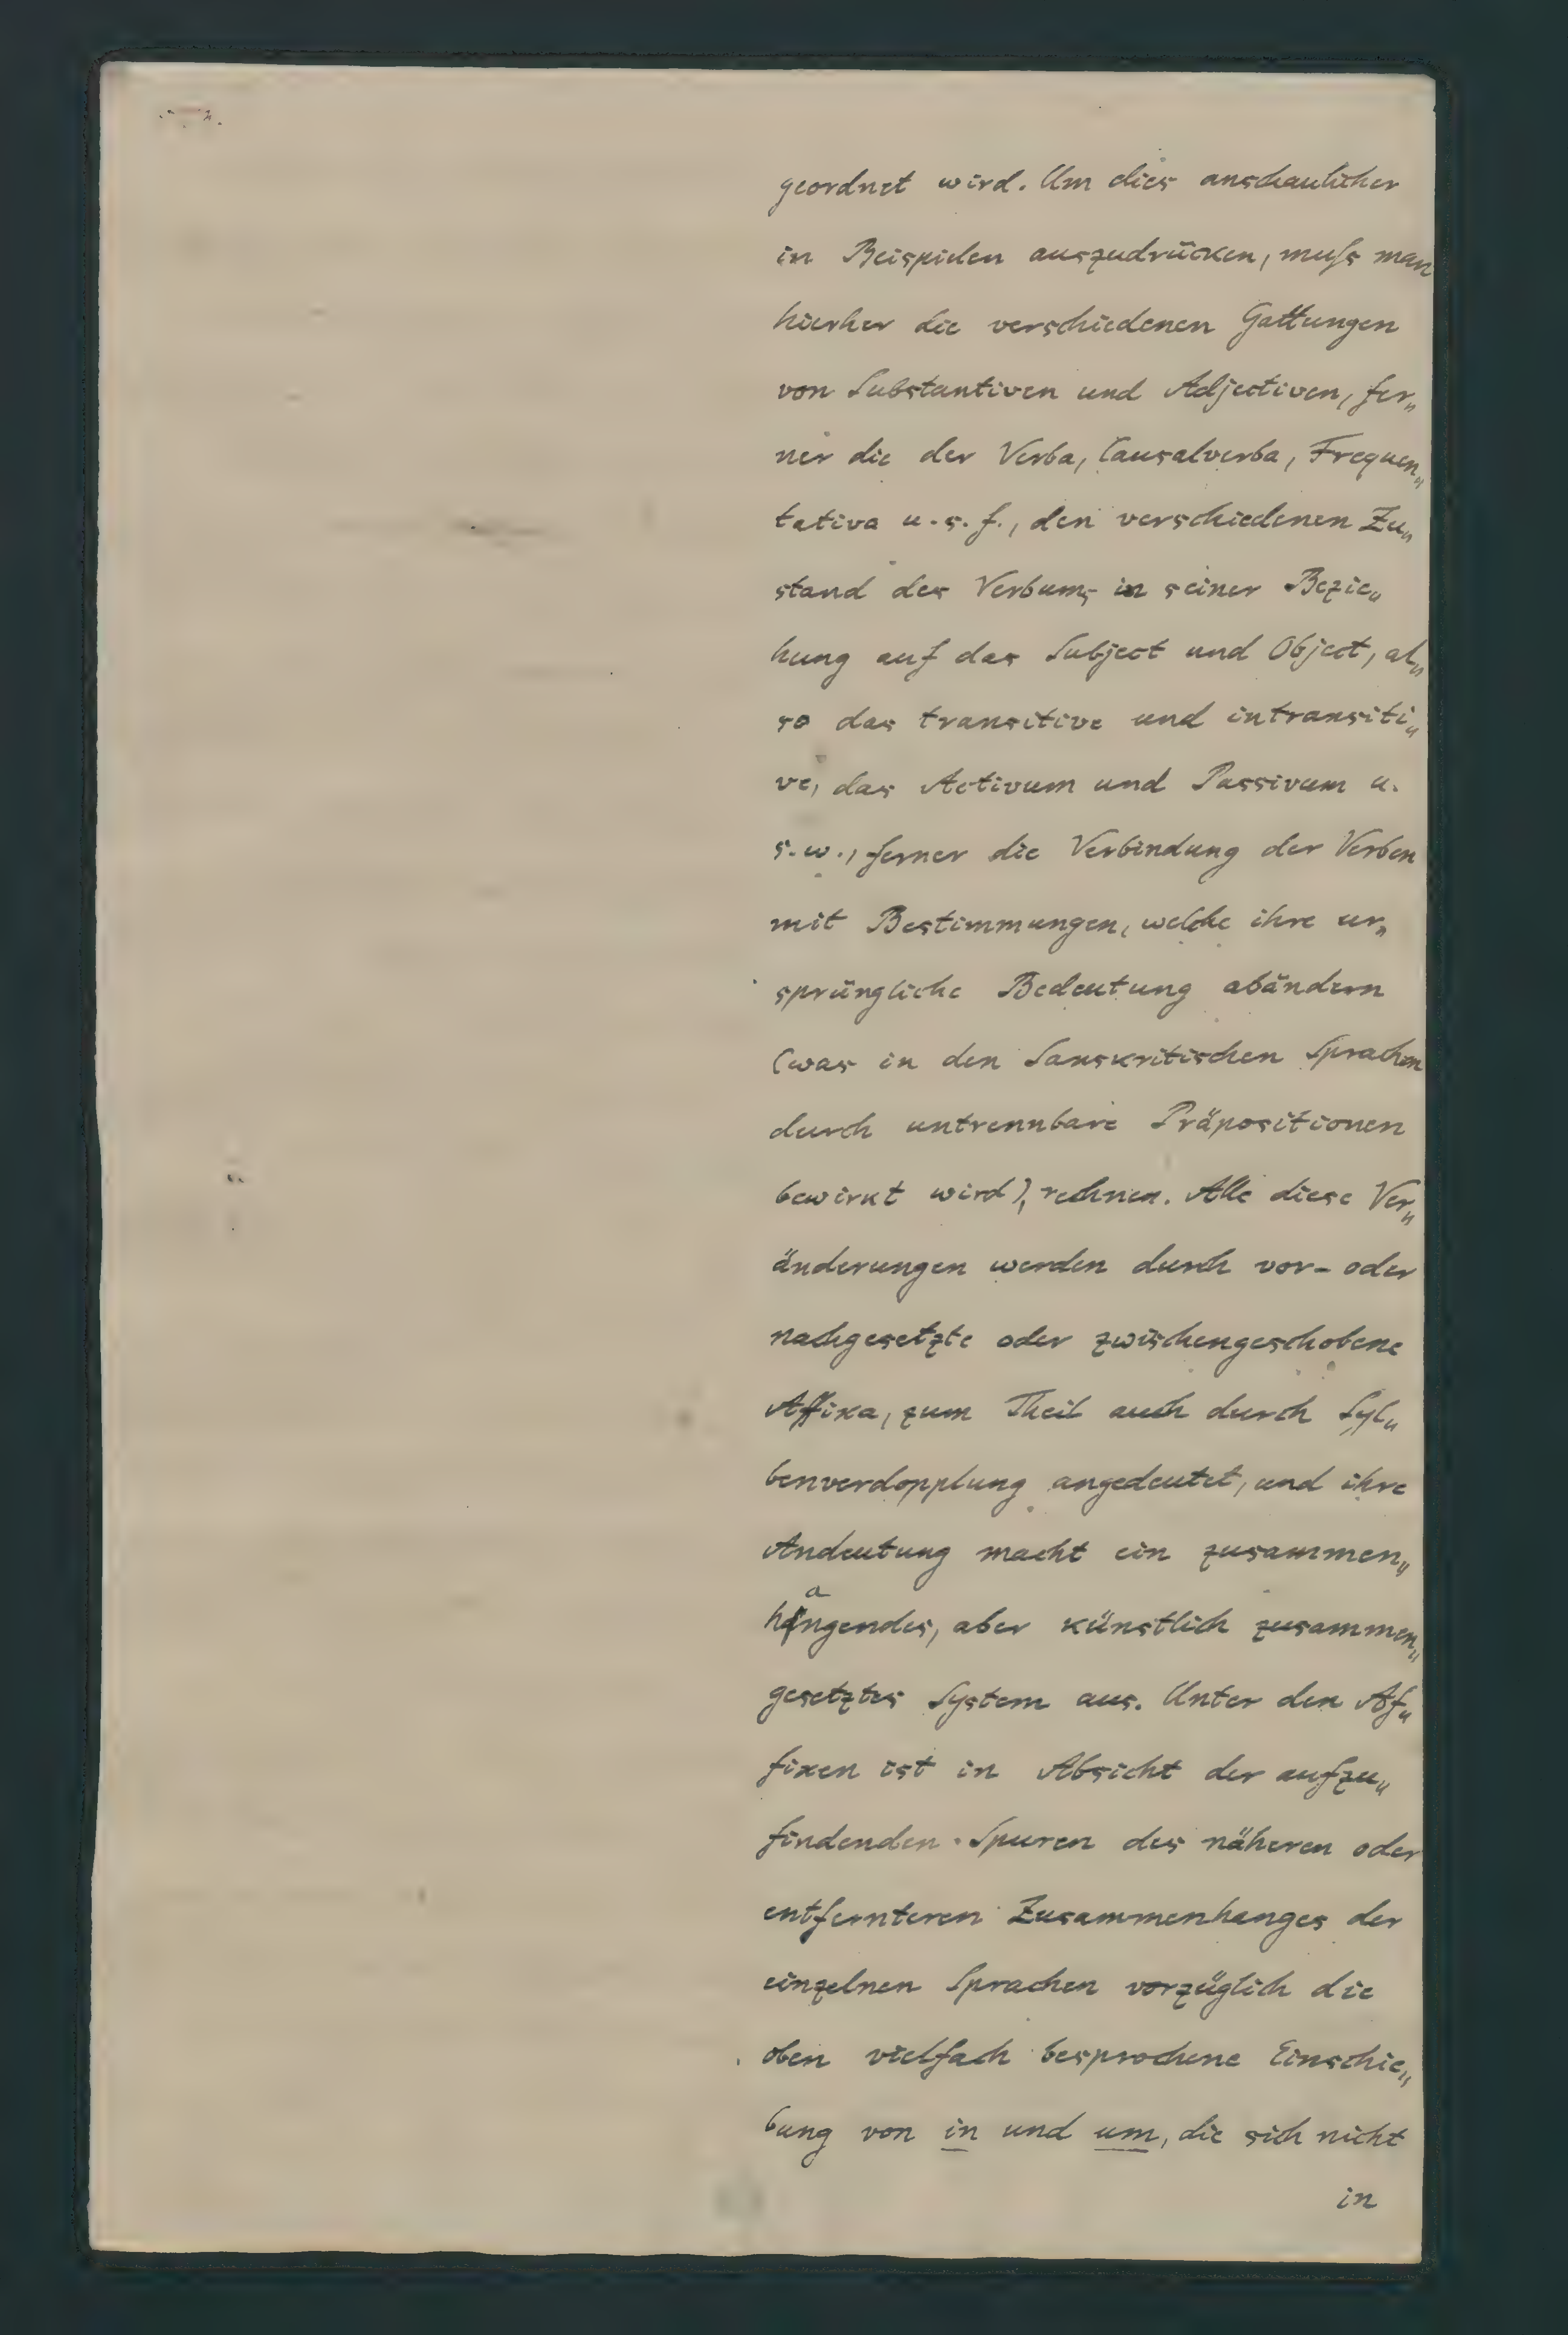 geordnet wird. Um dies anschaulicher
in Beispielen auszudrücken, muſs man
hierher die verschiedenen Gattungen
von Substantiven und Adjectiven, fer„
ner die der Verba, Causalverba, Frequen„
tativa u. s. f., den verschiedenen Zu„
stand des Verbums in seiner Bezie„
hung auf das Subject und Object, al„
so das transitive und intransiti„
ve, das Activum und Passivum u.
s. w., ferner die Verbindung der Verben
mit Bestimmungen, welche ihre ur„
sprüngliche Bedeutung abändern
(was in den Sanskritischen Sprachen
durch untrennbare Präpositionen
bewirkt wird), rechnen. Alle diese Ver„
änderungen werden durch vor- oder
nachgesetzte oder zwischengeschobene
Affixa, zum Theil auch durch Syl„
benverdopplung angedeutet, und ihre
Andeutung macht ein zusammen„
hangendes, aber künstlich zusammen„
gesetztes System aus. Unter den Af„
fixen ist in Absicht der aufzu„
findenden Spuren des näheren oder
entfernteren Zusammenhanges der
einzelnen Sprachen vorzüglich die
oben vielfach besprochene Einschie„
bung von in und um, die sich nicht
in